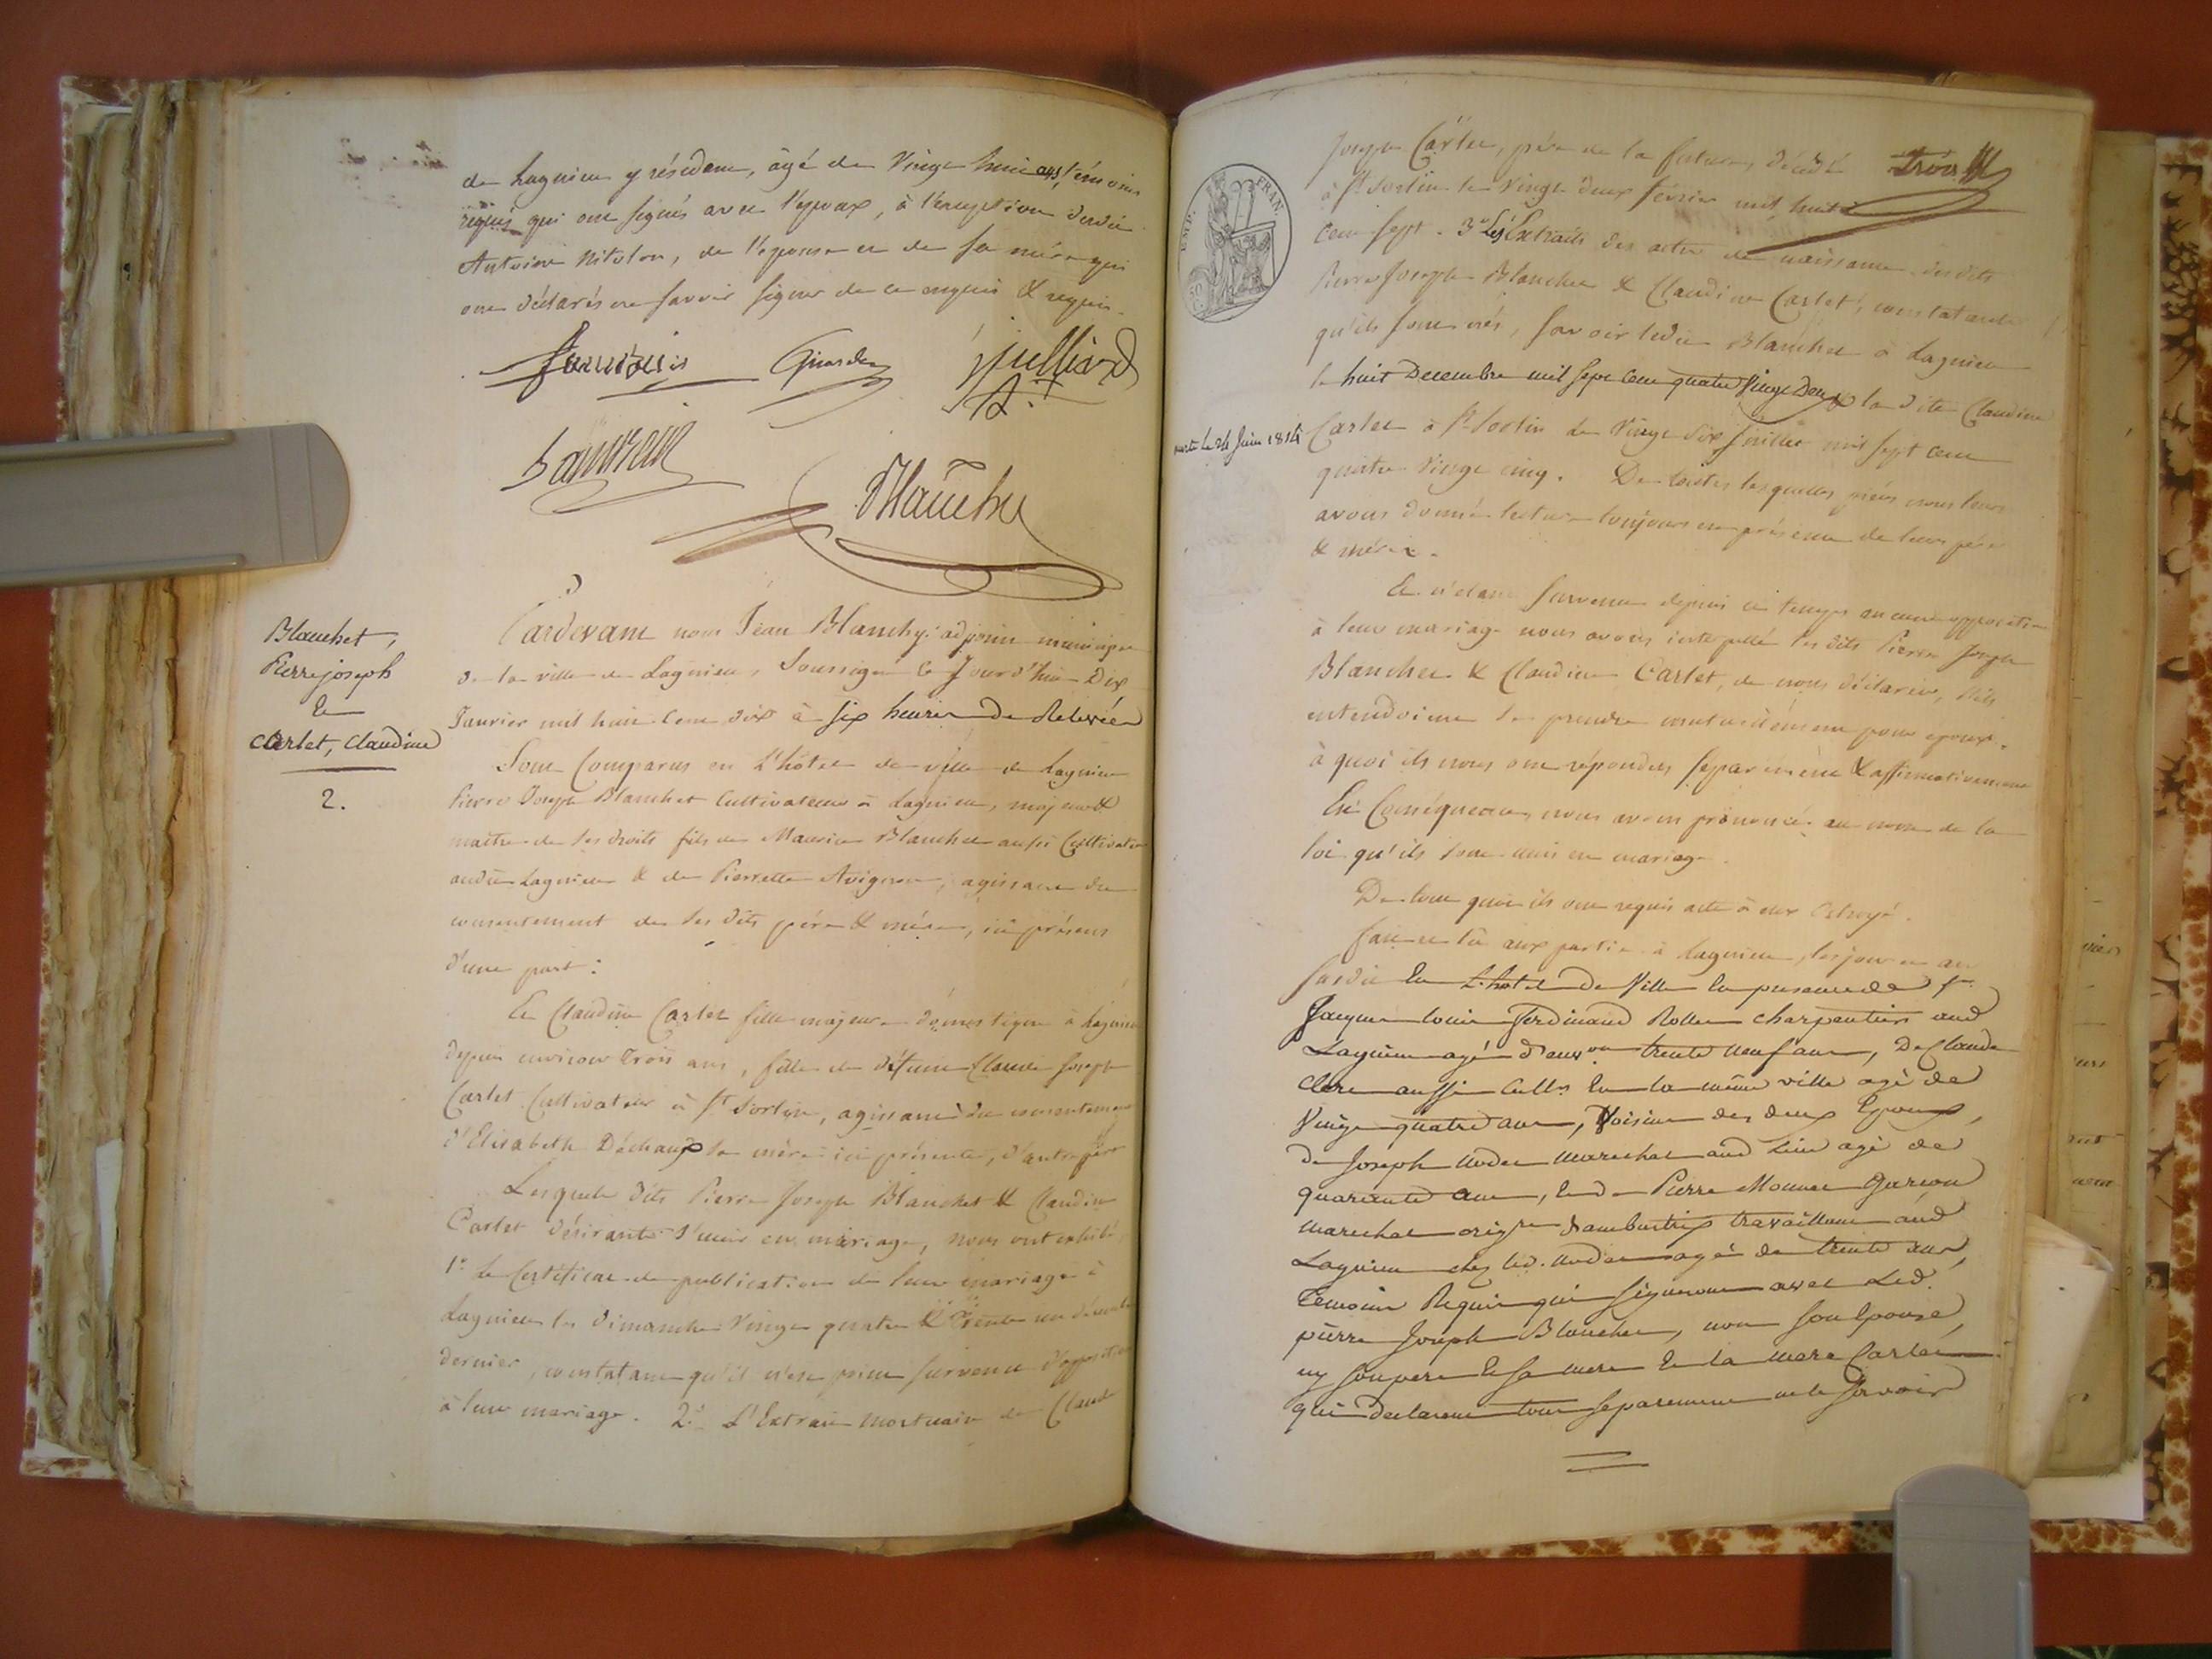 de Lagnieu y résidant, âgé de Vingt huit ans, témoins
requis qui ont signés avec l'epoux, à l'exception dudit
Antoine Nitolon, de l'epouse et de sa mère qui
ont déclarés ne savoir signer de ce enquis & requis.
Girardin
Juilliard
Blanchy
Blanchet,
Pierre joseph
&
Carlet, Claudine
2.
Pardevant nous Jean Blanchy adjoint municipal
de la ville de Lagnieu, Soussigné le Jourd'hui Dix
Janvier mil huit Cent dix à six heures de Relevée
Sont Comparus en L'hôtel de ville de Lagnieu
Pierre Joseph Blanchet Cultivateur à Lagnieu, majeur &
maître de ses droits fils de Maurice Blanchet aussi Cultivateur
audit Lagnieu & de Pierrette Avignon, agissant du
consentement de ses dits père & mère, ici présens
d'une part :
Et Claudine Carlet fille majeure domestique à Lagnieu
depuis environ trois ans, fille de défunt Claude Joseph
Carlet Cultivateur à St Sorlin, agissant du consentement
d'Elisabeth Déchaux sa mère ici présente, d'autre part
Lesquels dits Pierre Joseph Blanchet & Claudine
Carlet désirants s'unir en mariage, nous ont exhibé,
1° Le Certificat de publication de leur mariage à
Lagnieu les dimanche Vingt quatre & Trente un décembre
dernier, constatant qu'il n'est point survenu d'opposition
à leur mariage. 2° L'Extrait mortuaire de Claude
EMP. FRAN.
trois
Joseph Carlet, père de la future, décédé
à St Sorlin le Vingt deux février mil huit
cent sept. 3° Les Extraits des actes de naissance desdits
Pierre Joseph Blanchet & Claudine Carlet, constatants
qu'ils sont nés, savoir ledit Blanchet à Lagnieu
le huit Decembre mil sept cent quatre Vingt Deux la dite Claudine
morte le 24 Juin 1814
Carlet à St Sorlin le Vingt six Juillet mil sept cent
quatre Vingt cinq. De toutes lesquelles pièces nous leurs
avons donné lecture toujours en présence de leurs père
& mère.
Et n'étant survenu depuis ce temps aucune opposition
à leur mariage nous avons interpellé les dits Pierre Joseph
Blanchet & Claudine Carlet, de nous déclarer, s'ils
entendoient se prendre mutuellement pour epoux,
à quoi ils nous ont répondus séparément & affirmativement
En Conséquence, nous avons prononcé au nom de la
loi qu'ils sont unis en mariage.
De tout quoi ils ont requis acte à eux Octroyé.
fait et lû aux parties à Lagnieu, les jour et an
susdit En L'hotel De Ville En presence de Sr
Jacques Louis Ferdinand Rolle charpentier aud
Lagnieu agé d'environ trente neuf ans, De Claude
Clere aussi Cultr En la même ville agé de
Vingt quatre ans, Voisins des deux Epoux,
De Joseph Nodet Marechal aud Lieu agé de
quarante ans, Et De Pierre Monnet Garcon
Marechal origre d'ambutrix travaillant aud
Lagnieu chez led. Nodet agé de trente ans,
Temoins Requis qui signeront avec Led.
pierre Joseph Blanchet, non son Epouse,
ny son pere Et sa mere Et la mere Carlet
qui Declarent tous separement ne le Savoir